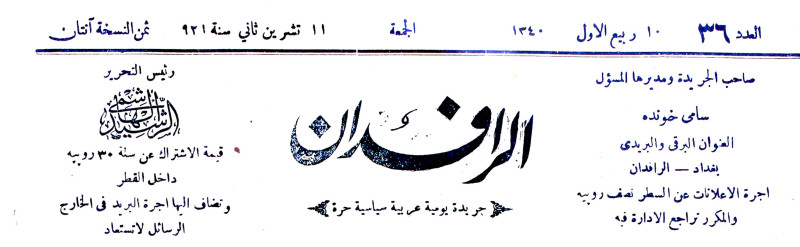 العدد ٣٦ ١٠ ربيع الاول ١٣٤٠ الجمعة ١١ تشرين ثاني سنة ٩٢١ ثمن النسخة آنتان
صاحب الجريدة ومديرها المسؤل
سامي خونده
العنوان البرقي والبريدي
بغداد — الرافدان
اجرة الاعلانات عن السطر نصف روبيه
والمكرر تراجع الادارة فيه
الرافدان
جريدة يومية عربية سياسية حرة
رئيس التحرير
الرشيد الهاشمي
قيمة الاشتراك عن سنة ٣٠ روبيه
داخل القطر
وتضاف اليها اجرة البريد في الخارج
الرسائل لاتستعاد